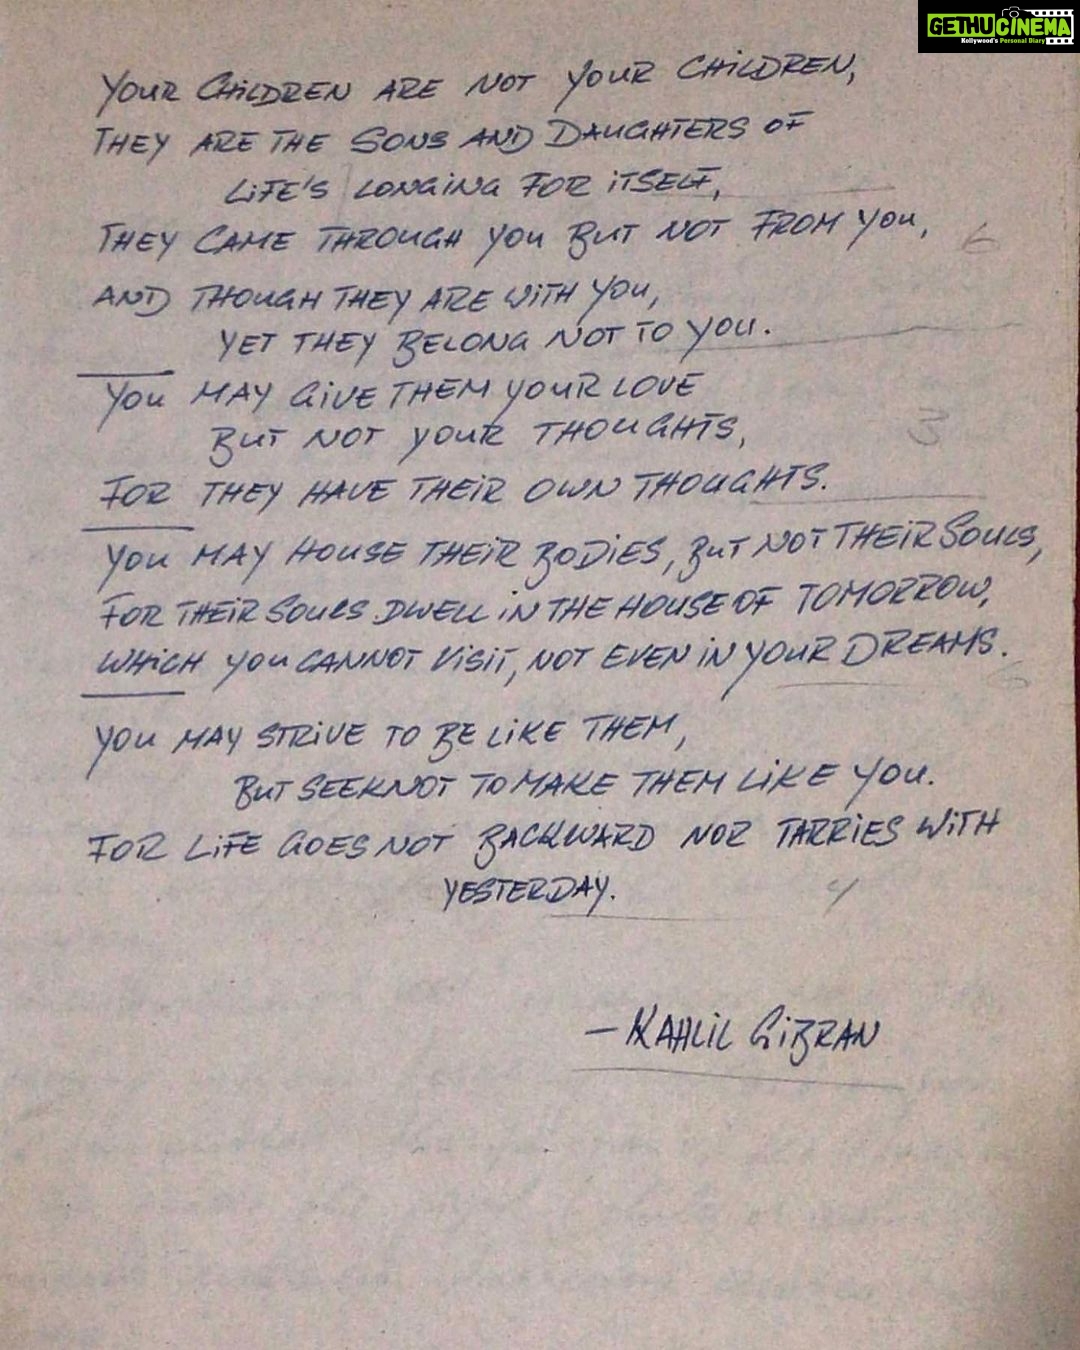 GETHU CINEMA
Kollywood's Personal Diary
YOUR CHILDREN ARE NOT YOUR CHILDREN,
THEY ARE THE SONS AND DAUGHTERS OF
LIFE'S LONGING FOR ITSELF,
THEY CAME THROUGH YOU BUT NOT FROM YOU,
6
AND THOUGH THEY ARE WITH YOU,
YET THEY BELONG NOT TO YOU.
YOU MAY GIVE THEM YOUR LOVE
BUT NOT YOUR THOUGHTS,
3
FOR THEY HAVE THEIR OWN THOUGHTS.
YOU MAY HOUSE THEIR BODIES, BUT NOT THEIR SOULS,
FOR THEIR SOULS DWELL IN THE HOUSE OF TOMORROW,
WHICH YOU CANNOT VISIT, NOT EVEN IN YOUR DREAMS.
YOU MAY STRIVE TO BE LIKE THEM,
BUT SEEK NOT TO MAKE THEM LIKE YOU.
FOR LIFE GOES NOT BACKWARD NOR TARRIES WITH
YESTERDAY.
4
— KAHLIL GIBRAN